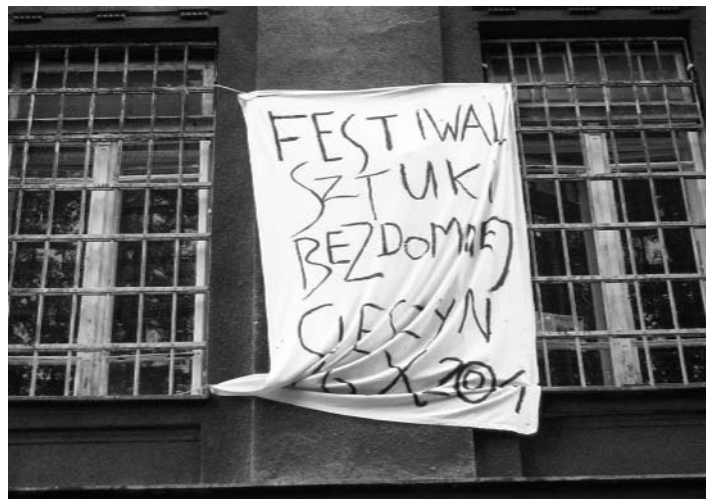 FESTIWAL
SZTUKI
BEZDOMNEJ
CIESZYN
X 201